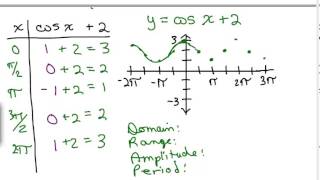 x | cos x + 2
0 | 1 + 2 = 3
π/2 | 0 + 2 = 2
π | -1 + 2 = 1
3π/2 | 0 + 2 = 2
2π | 1 + 2 = 3
y = cos x + 2
3
-2π -π π 2π 3π
-3
Domain:
Range:
Amplitude:
Period: